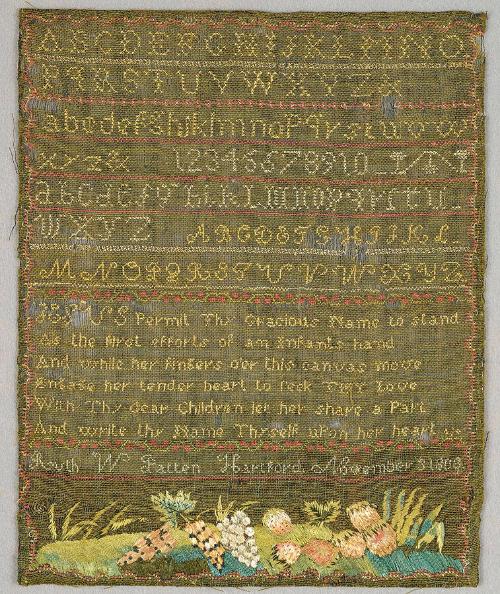 ABCDEFGHIJKLMNO
PQRSTUVWXYZ&
abcdefghijklmnopqrstuvw
xyz& 12345678910
abcdefghiklmnopqrstu
wxyz ABCDEFGHIJKL
MNOPQRSTUVWXYZ
JESUS Permit Thy Gracious Name to stand
As the first efforts of an Infants hand
And while her fingers o'er this canvas move
Engage her tender heart to seek Thy Love
With Thy dear Children let her share a Part
And write thy Name Thyself upon her heart
Ruth W Patten Hartford November